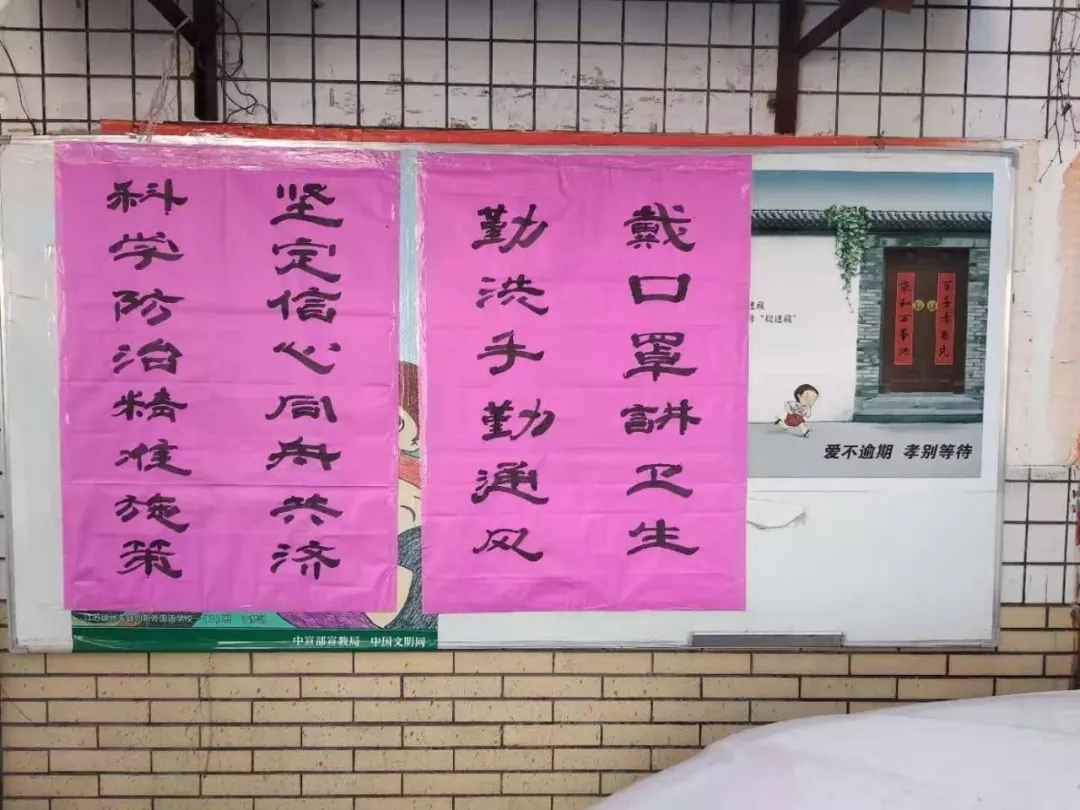 戴口罩讲卫生
勤洗手勤通风
坚定信心同舟共济
科学防治精准施策
迷藏
"捉迷藏"
百善孝为先
家和万事兴
爱不逾期 孝别等待
中宣部宣教局 中国文明网